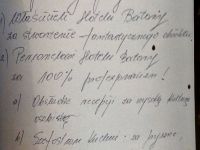 1) Właścicieli Hotelu Batory
za stworzenie fantastycznego obiektu
2) Personelowi Hotelu Batory
za 100% profesjonalizm!
a) Obsłudze recepcji za wysoką kulturę
osobistą
b) Szefostwu kuchni - za pyszne,